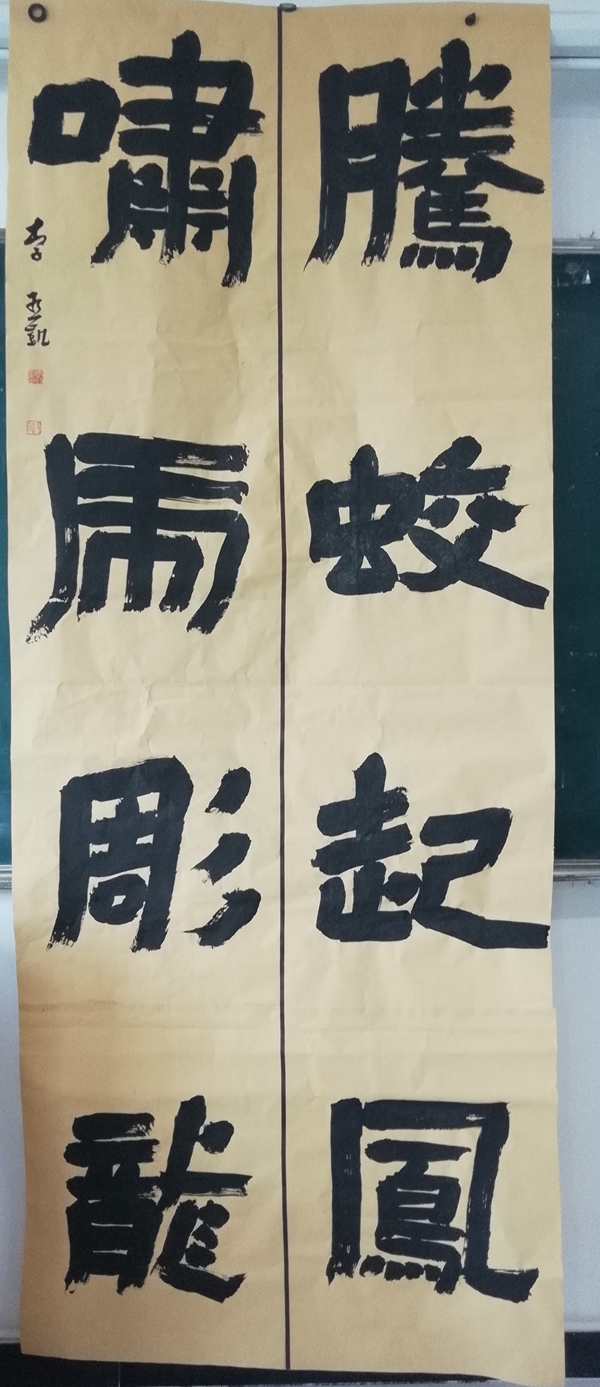 騰蛟起鳳
嘯虎彫龍
李丞凱